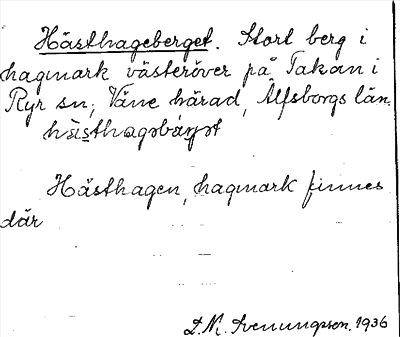 Hästhageberget. Stort berg i
hagmark västeröver på Takan i
Ryr sn, Väne härad, Älfsborgs län.
Hästhagen, hagmark finnes
där
1936